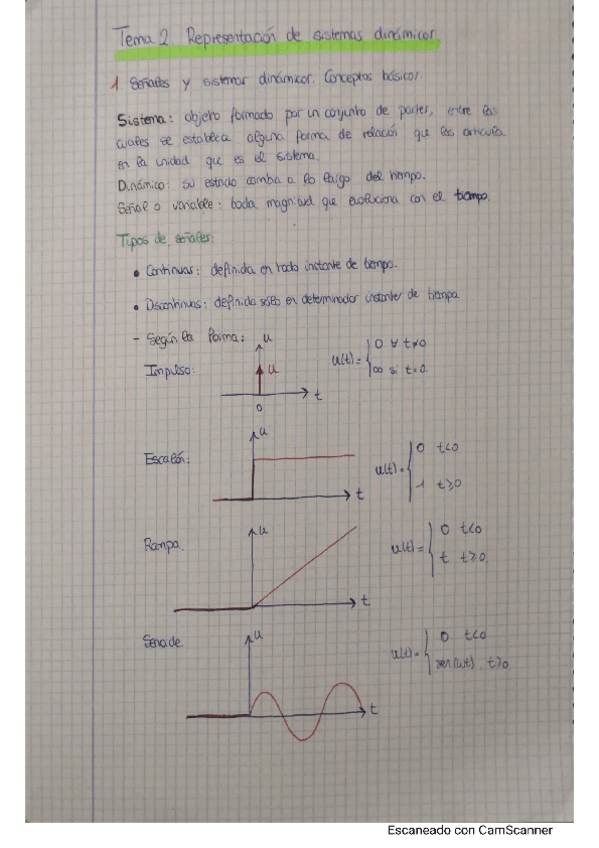 Tema 2 Representación de sistemas dinámicos
1. Señales y sistemas dinámicos. Conceptos básicos.
Sistema: objeto formado por un conjunto de partes, entre las
cuales se establece alguna forma de relación que las articula
en la unidad que es el sistema.
Dinámico: su estado cambia a lo largo del tiempo.
Señal o variable: toda magnitud que evoluciona con el tiempo.
Tipos de señales:
• Continuas: definida en todo instante de tiempo.
• Discontinuas: definida sólo en determinados instantes de tiempo.
- Según la forma:
u
Impulso:
u
u(t) = { 0 ∀ t≠0
∞ si t=0.
t
0
u
Escalón:
u(t) = { 0 t<0
1 t≥0
t
u
Rampa.
u(t) = { 0 t<0
t t≥0.
t
u
Senoide.
u(t) = { 0 t<0
sen(wt). t≥0
t
Escaneado con CamScanner